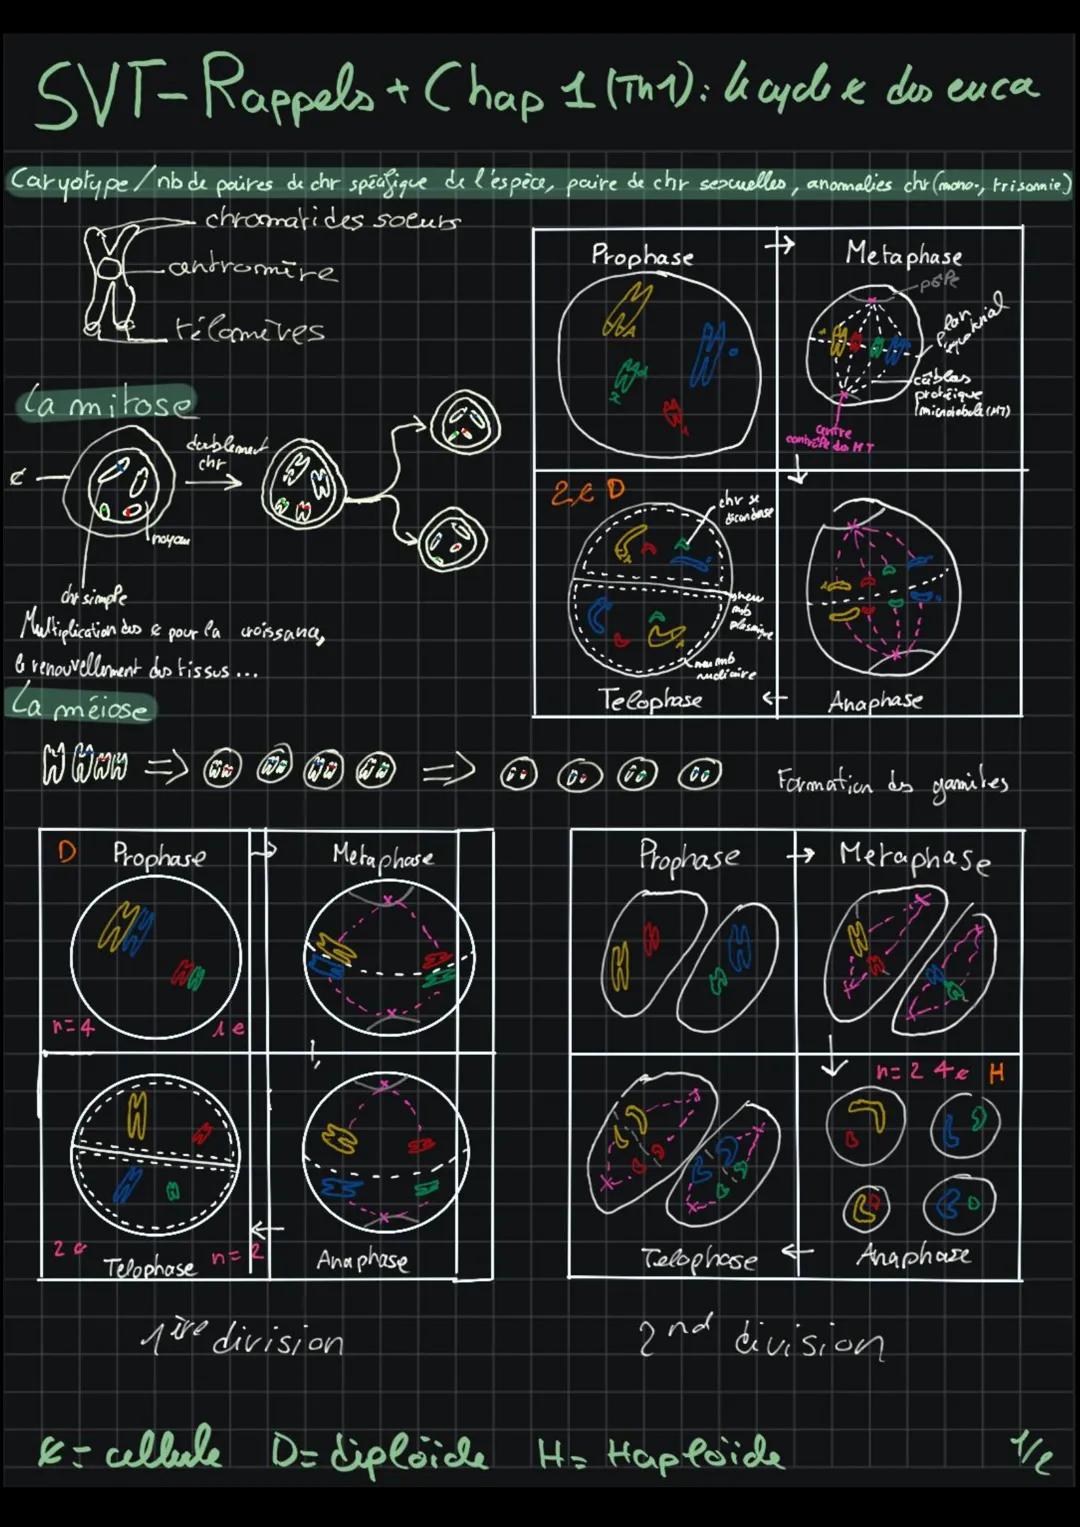 SVT - Rappels + Chap 1 (Th1): le cycle ¢ des euca
Caryotype / nb de paires de chr spécifique de l'espèce, paire de chr sexuelles, anomalies chr (mono., trisomie)
chromatides soeurs
centromère
télomères
La mitose
¢
doublement
chr
noyau
chr simple
Multiplication des ¢ pour la croissance,
le renouvellement des tissus ...
Prophase
→ Metaphase
pôle
plan
équatorial
câbles
protéique
microtubule (MT)
centre
contrôle des MT
2 ¢ D
chr se
décondense
new
mb
plasmique
new mb
nucléaire
Telophase
← Anaphase
La méiose
Formation des gamètes
D Prophase
→ Metaphase
n=4
1 ¢
2 ¢
Telophase
n=2
← Anaphase
1ière division
Prophase
→ Metaphase
n=2 4 ¢ H
Telophase
← Anaphase
2nd division
¢ = cellule D= diploïde H= Haploïde
1/2